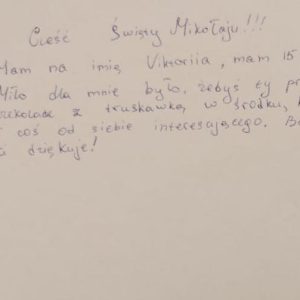 Cześć Święty Mikołaju!!!
Mam na imię Viktoriia, mam 15
Miło dla mnie było, żebyś ty
z truskawką w środku,
coś od siebie interesującego.
dziękuje!